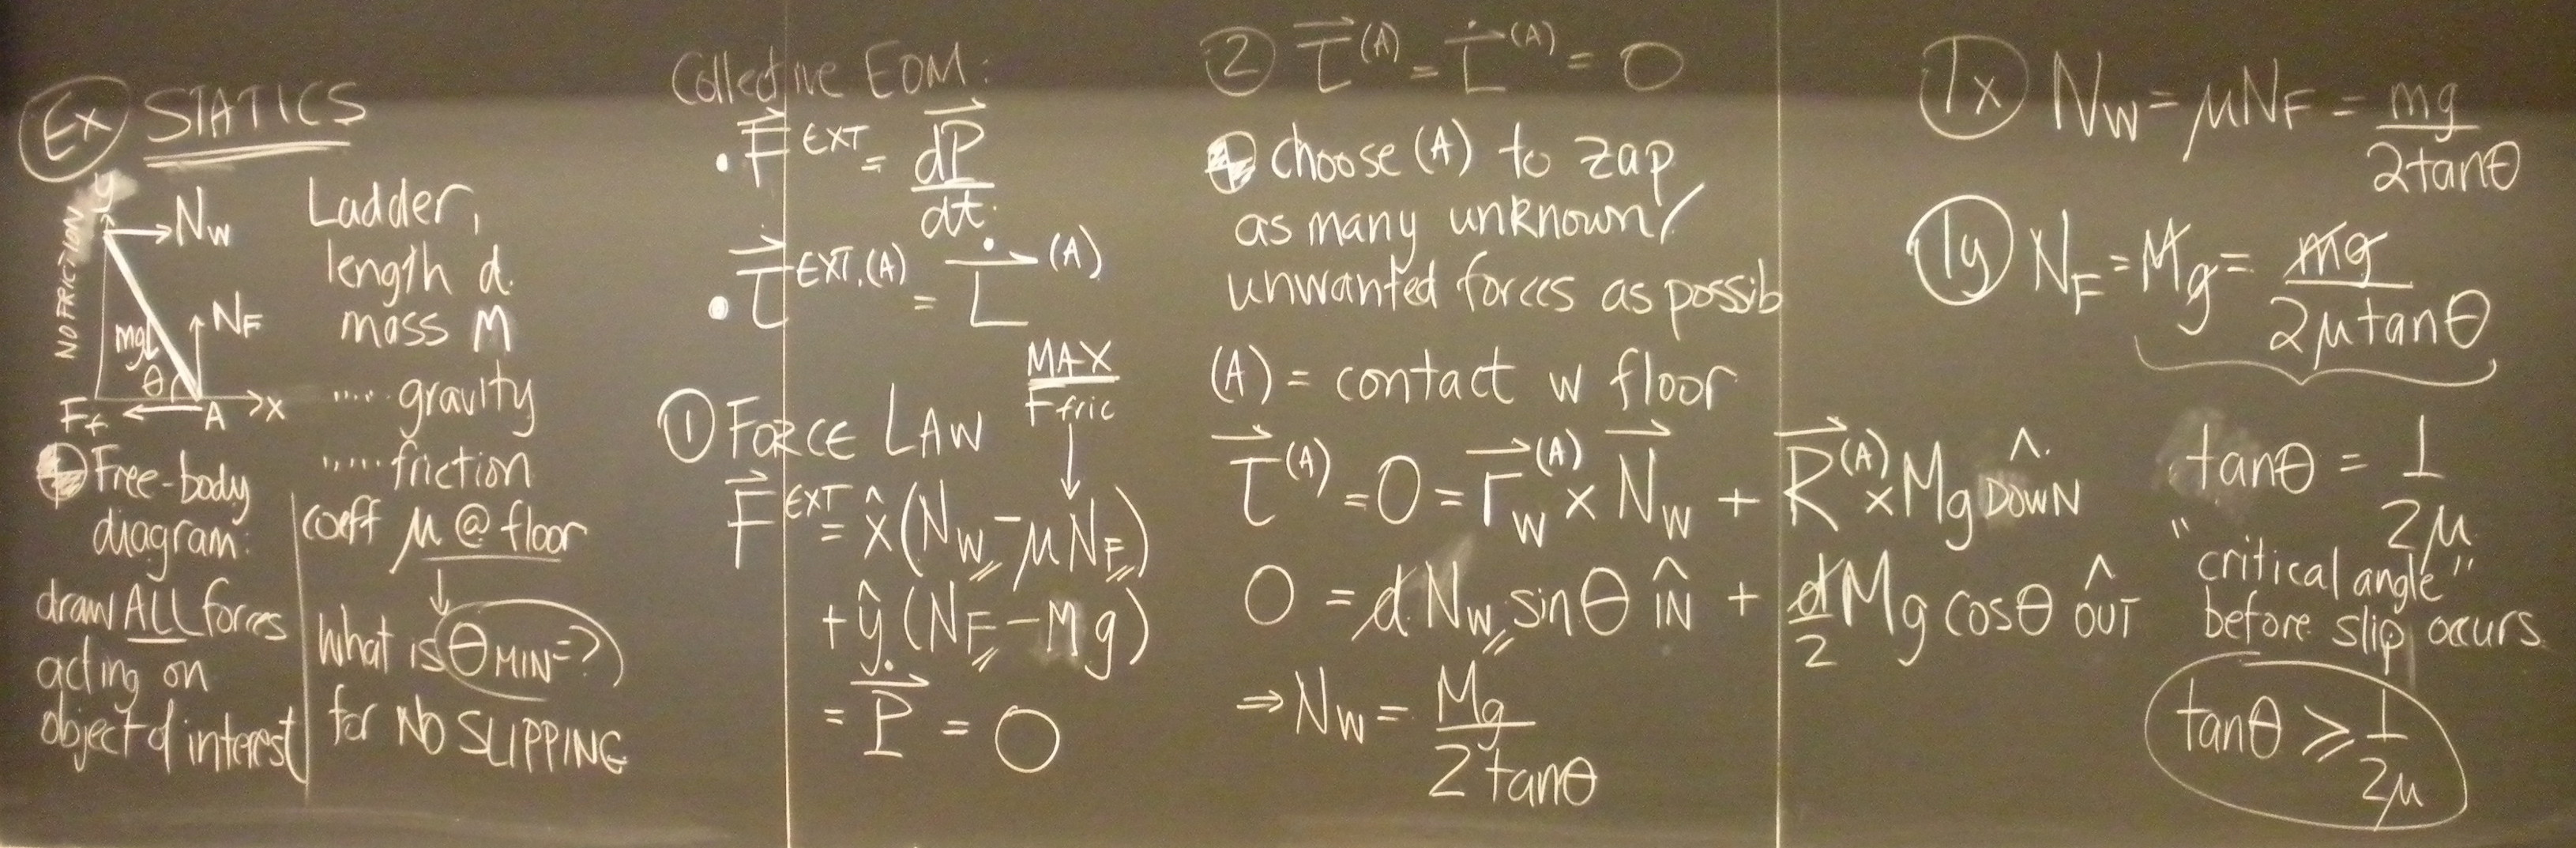 Ex STATICS
y
NO FRICTION
N_W
N_F
mg
θ
F_f
A
x
Ladder,
length d
mass M
..... gravity
..... friction
coeff μ @ floor
What is θ_MIN=?
for NO SLIPPING
Free-body
diagram:
draw ALL forces
acting on
object of interest
Collective EOM:
• F⃗^EXT = dP⃗/dt
• τ⃗^EXT,(A) = L⃗̇^(A)
① FORCE LAW
MAX
F_fric
F⃗^EXT = x̂(N_W - μN_F)
+ ŷ(N_F - Mg)
= P⃗̇ = 0
② τ⃗^(A) = L⃗̇^(A) = 0
choose (A) to zap
as many unknown/
unwanted forces as possib
(A) = contact w floor
τ⃗^(A) = 0 = r⃗_W^(A) × N⃗_W + R⃗^(A) × Mg DOWN^
0 = d N_W sinθ IN^ + d/2 Mg cosθ OUT^
⇒ N_W = Mg/2tanθ
1x N_W = μN_F = mg/2tanθ
1y N_F = Mg = mg/2μtanθ
tanθ = 1/2μ
"critical angle"
before slip occurs
tanθ ≥ 1/2μ